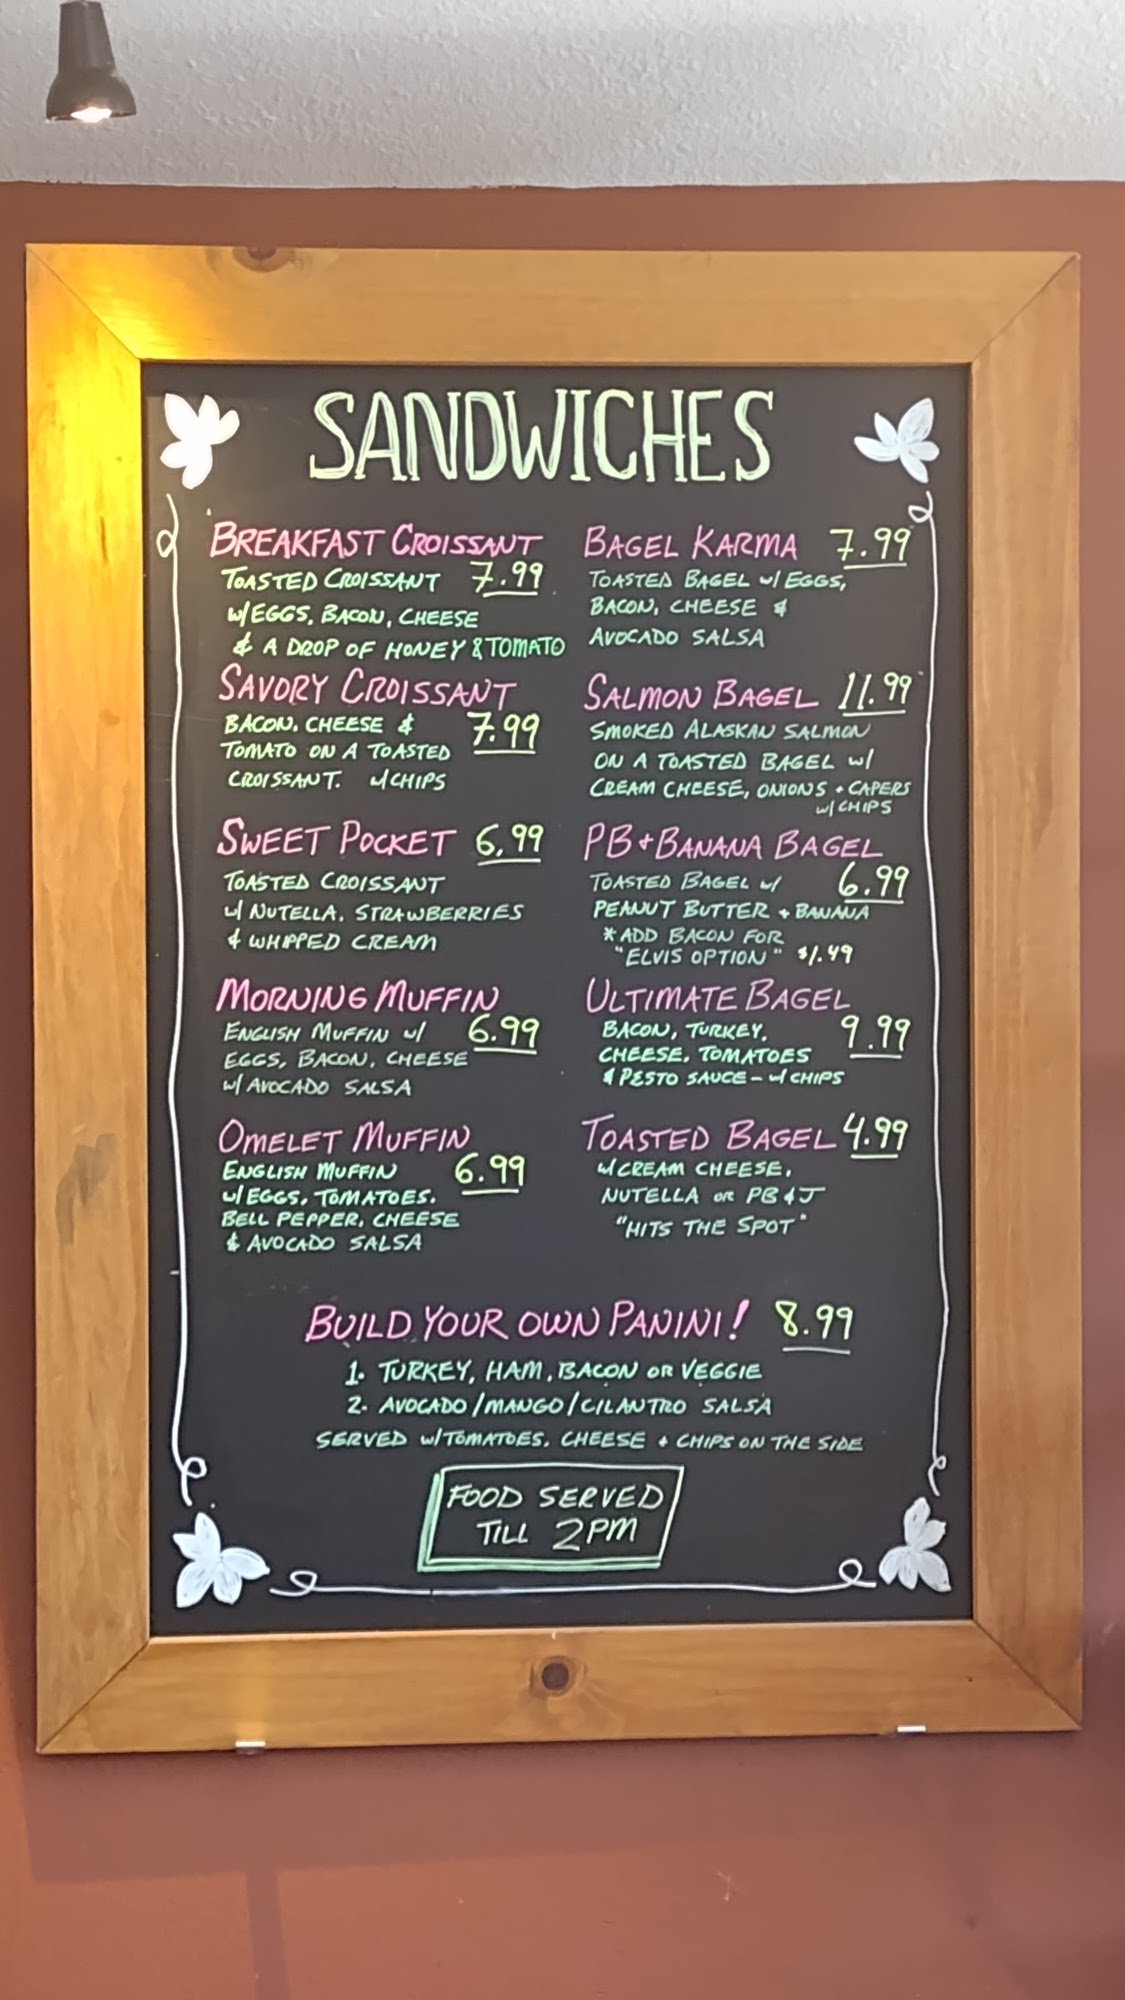 SANDWICHES
BREAKFAST CROISSANT
TOASTED CROISSANT 7.99
W/EGGS, BACON, CHEESE
& A DROP OF HONEY & TOMATO
SAVORY CROISSANT
BACON, CHEESE & 7.99
TOMATO ON A TOASTED
CROISSANT. W/CHIPS
SWEET POCKET 6.99
TOASTED CROISSANT
W/ NUTELLA, STRAWBERRIES
& WHIPPED CREAM
MORNING MUFFIN
ENGLISH MUFFIN W/ 6.99
EGGS, BACON, CHEESE
W/ AVOCADO SALSA
OMELET MUFFIN
ENGLISH MUFFIN 6.99
W/EGGS, TOMATOES,
BELL PEPPER, CHEESE
& AVOCADO SALSA
BAGEL KARMA 7.99
TOASTED BAGEL W/ EGGS,
BACON, CHEESE &
AVOCADO SALSA
SALMON BAGEL 11.99
SMOKED ALASKAN SALMON
ON A TOASTED BAGEL W/
CREAM CHEESE, ONIONS + CAPERS
W/ CHIPS
PB+BANANA BAGEL
TOASTED BAGEL W/ 6.99
PEANUT BUTTER + BANANA
*ADD BACON FOR
"ELVIS OPTION" $1.49
ULTIMATE BAGEL
BACON, TURKEY, 9.99
CHEESE, TOMATOES
& PESTO SAUCE - W/ CHIPS
TOASTED BAGEL 4.99
W/CREAM CHEESE,
NUTELLA OR PB & J
"HITS THE SPOT"
BUILD YOUR OWN PANINI! 8.99
1. TURKEY, HAM, BACON OR VEGGIE
2. AVOCADO/MANGO/CILANTRO SALSA
SERVED W/TOMATOES, CHEESE + CHIPS ON THE SIDE
FOOD SERVED
TILL 2PM